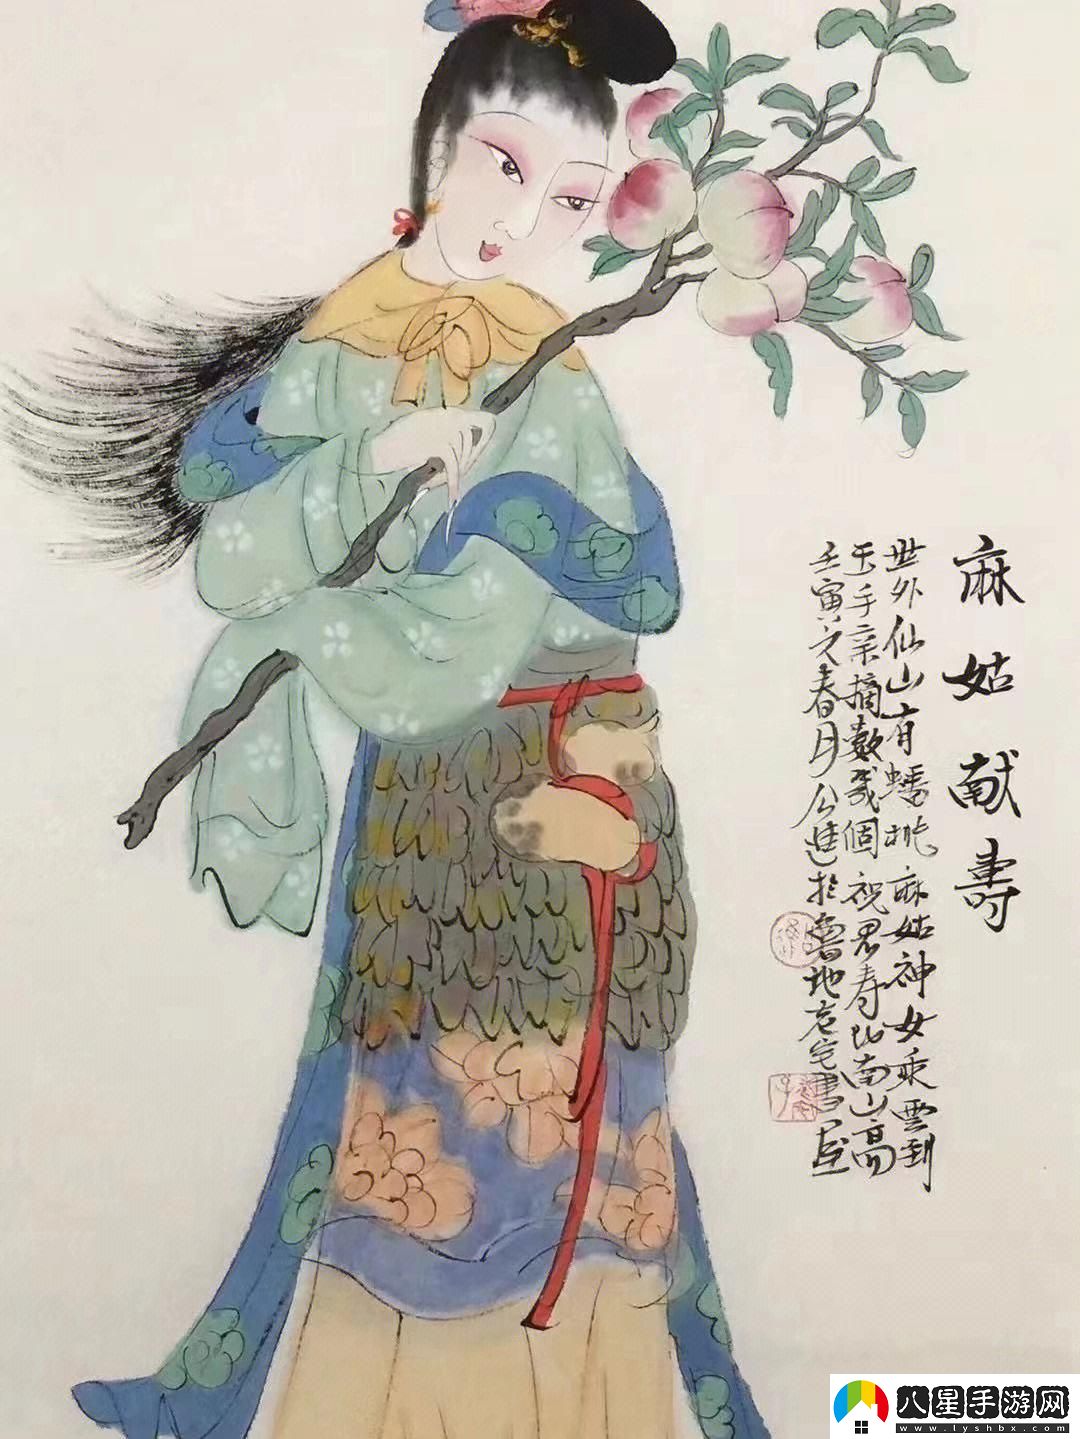 麻姑献壽
世外仙山有蟠桃麻姑神女乘雲到
玉手亲摘數幾個祝君寿比南山高
壬寅之春月公進於魯地古宅書画
八星手游网
www.lyshbx.com